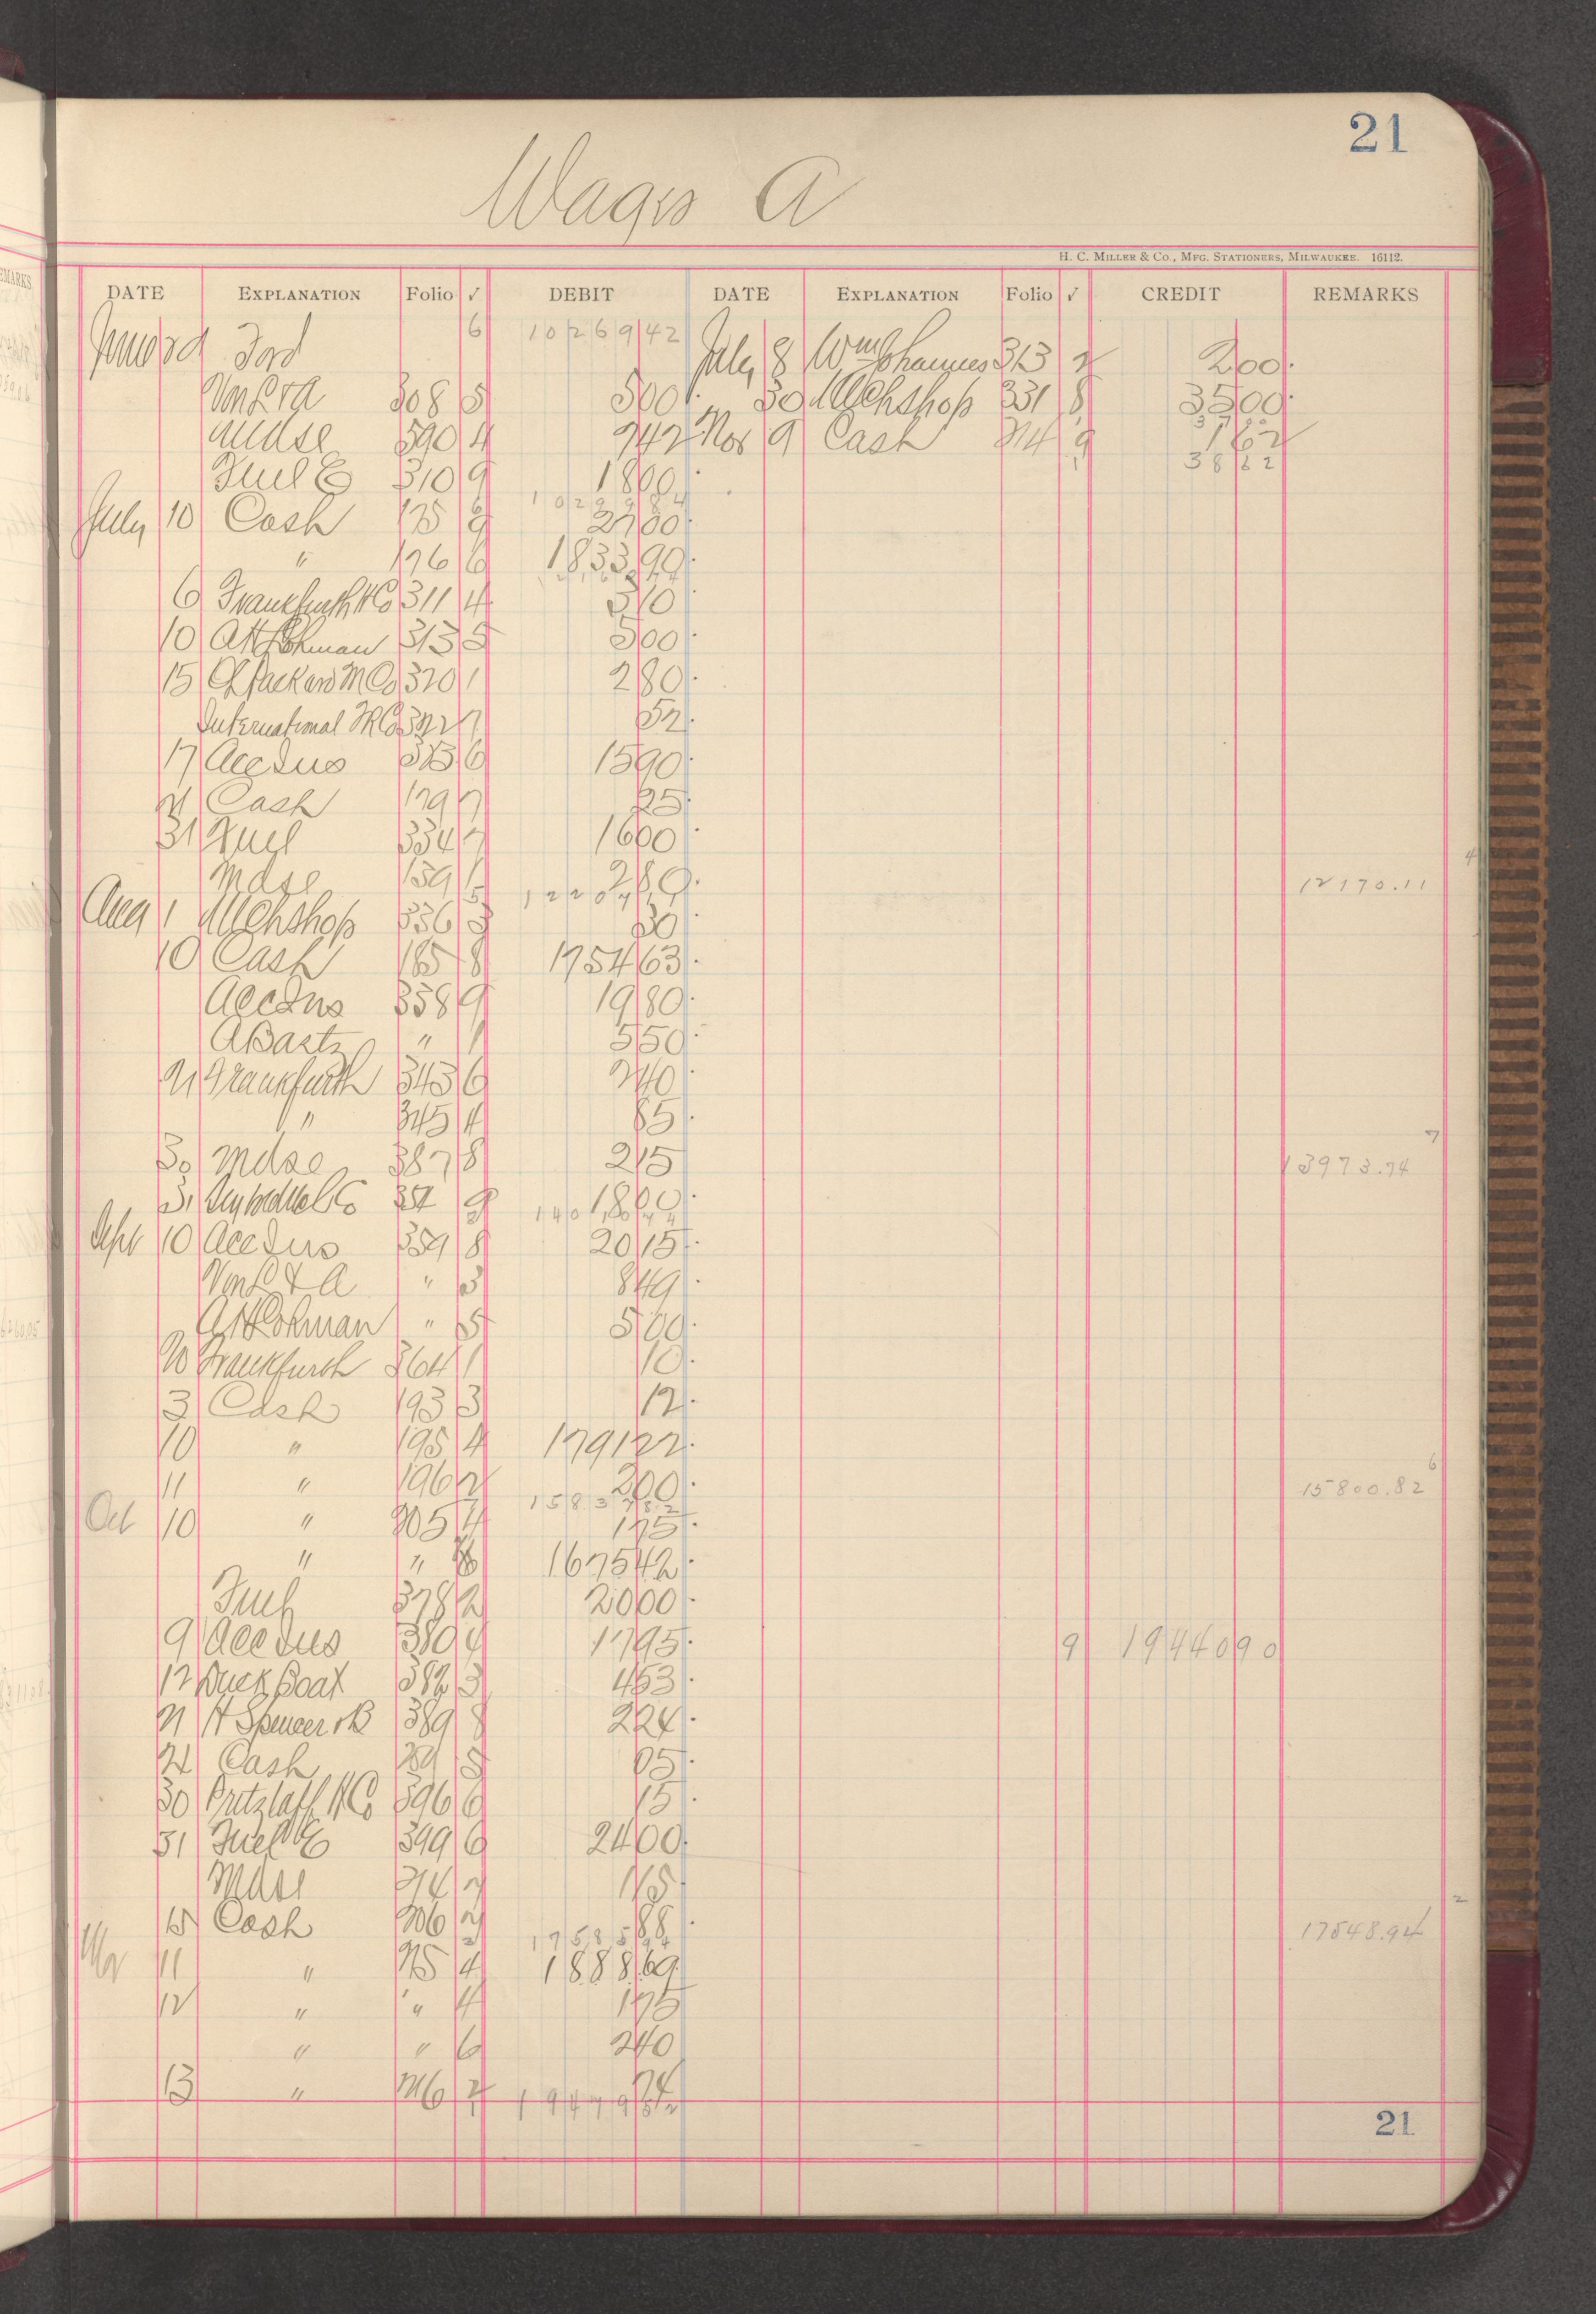 21
Wages A
H. C. MILLER & CO., MFG. STATIONERS, MILWAUKEE. 16112.
DATE EXPLANATION Folio √ DEBIT DATE EXPLANATION Folio √ CREDIT REMARKS
Ford 6 10269 42 July 8 Wm Johannes 313 2 2 00
308 5 5 00 30 Mchshop 331 8 35 00
Mdse 390 4 7 42 Nov 9 Cash 214 9 1 62
Fuel E 310 9 18 00 38 62
July 10 Cash 175 9 27 00
" 176 6 1833 90
6 Frankfurth H Co 311 4 3 10
10 AH Lohman 313 5 5 00
15 Packard M Co 320 1 2 80
International Co 7 52
17 Acc Ins 6 15 90
21 Cash 179 7 25
31 Fuel 334 7 16 00
Mdse 159 1 2 80 12170.11 4
Aug 1 Mchshop 336 3 30
10 Cash 185 8 1754 63
Acc Ins 338 9 19 80
A Bastz " 1 5 50
21 Frankfurth 343 6 2 40
" 345 4 85
30 Mdse 387 8 2 15 13973.74 7
31 9 18 00
Sept 10 Acc Ins 359 8 20 15
" 3 8 49
AH Lohman " 5 5 00
20 Frankfurth 364 1 10
3 Cash 193 3 12
10 " 195 4 1791 22
11 " 196 2 2 00 15800.82 6
Oct 10 " 205 4 1 75
" " 8 1675 42
Fuel 378 2 20 00
9 Acc Ins 380 4 17 95 9 19440 90
12 Duck Boat 382 3 4 53
21 H Spencer & B 389 8 2 24
21 Cash 5 05
30 Pritzlaff H Co 396 6 15
31 Fuel E 399 6 24 00
Mdse 214 2 1 15
15 Cash 206 2 88 17548.94 2
Nov 11 " 215 4 1888 69
12 " " 4 1 75
" " 6 2 40
13 " 216 2 74
19479 52
21